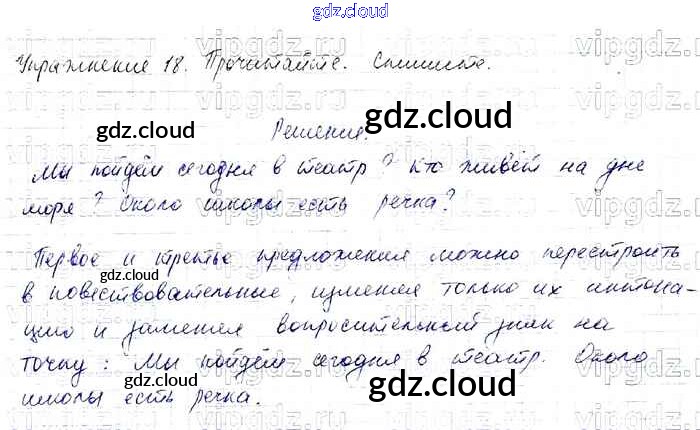 gdz.cloud
Упражнение 18. Прочитайте. Спишите.
Решение.
Мы пойдём сегодня в театр? Кто живёт на дне
моря? Около школы есть речка?
Первое и третье предложения можно перестроить
в повествовательные, изменяя только их интона-
цию и заменяя вопросительный знак на
точку: Мы пойдём сегодня в театр. Около
школы есть речка.